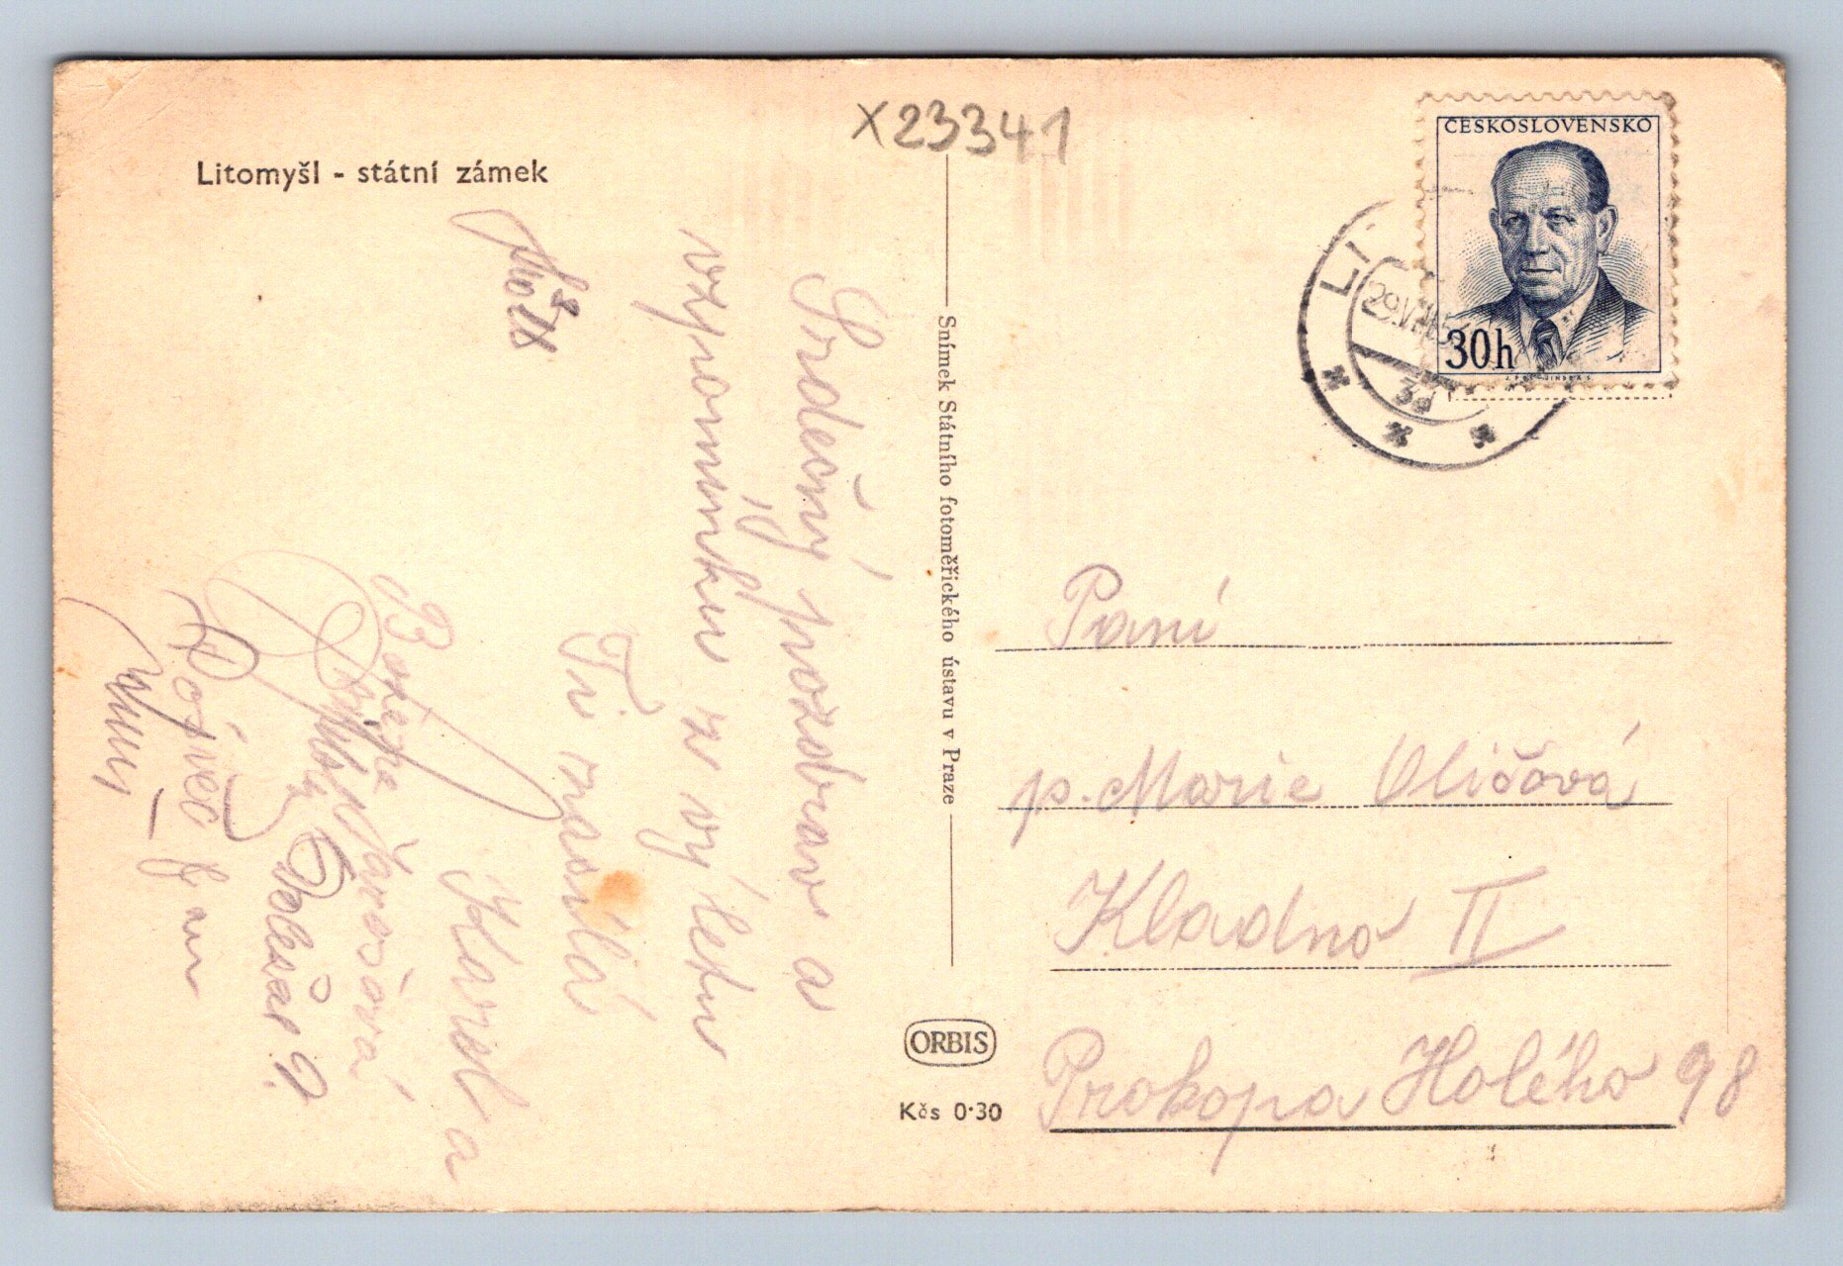 X23341
Litomyšl - státní zámek
Srdečný pozdrav a
vzpomínku z výletu
Ti zasílá
Karel a
Božena
Jarošová
Snímek Státního fotoměřického ústavu v Praze
ORBIS
Kčs 0·30
ČESKOSLOVENSKO
30h
LI
29.VIII.5
3d
Paní
p. Marie Oličová
Kladno II
Prokopa Holého 98